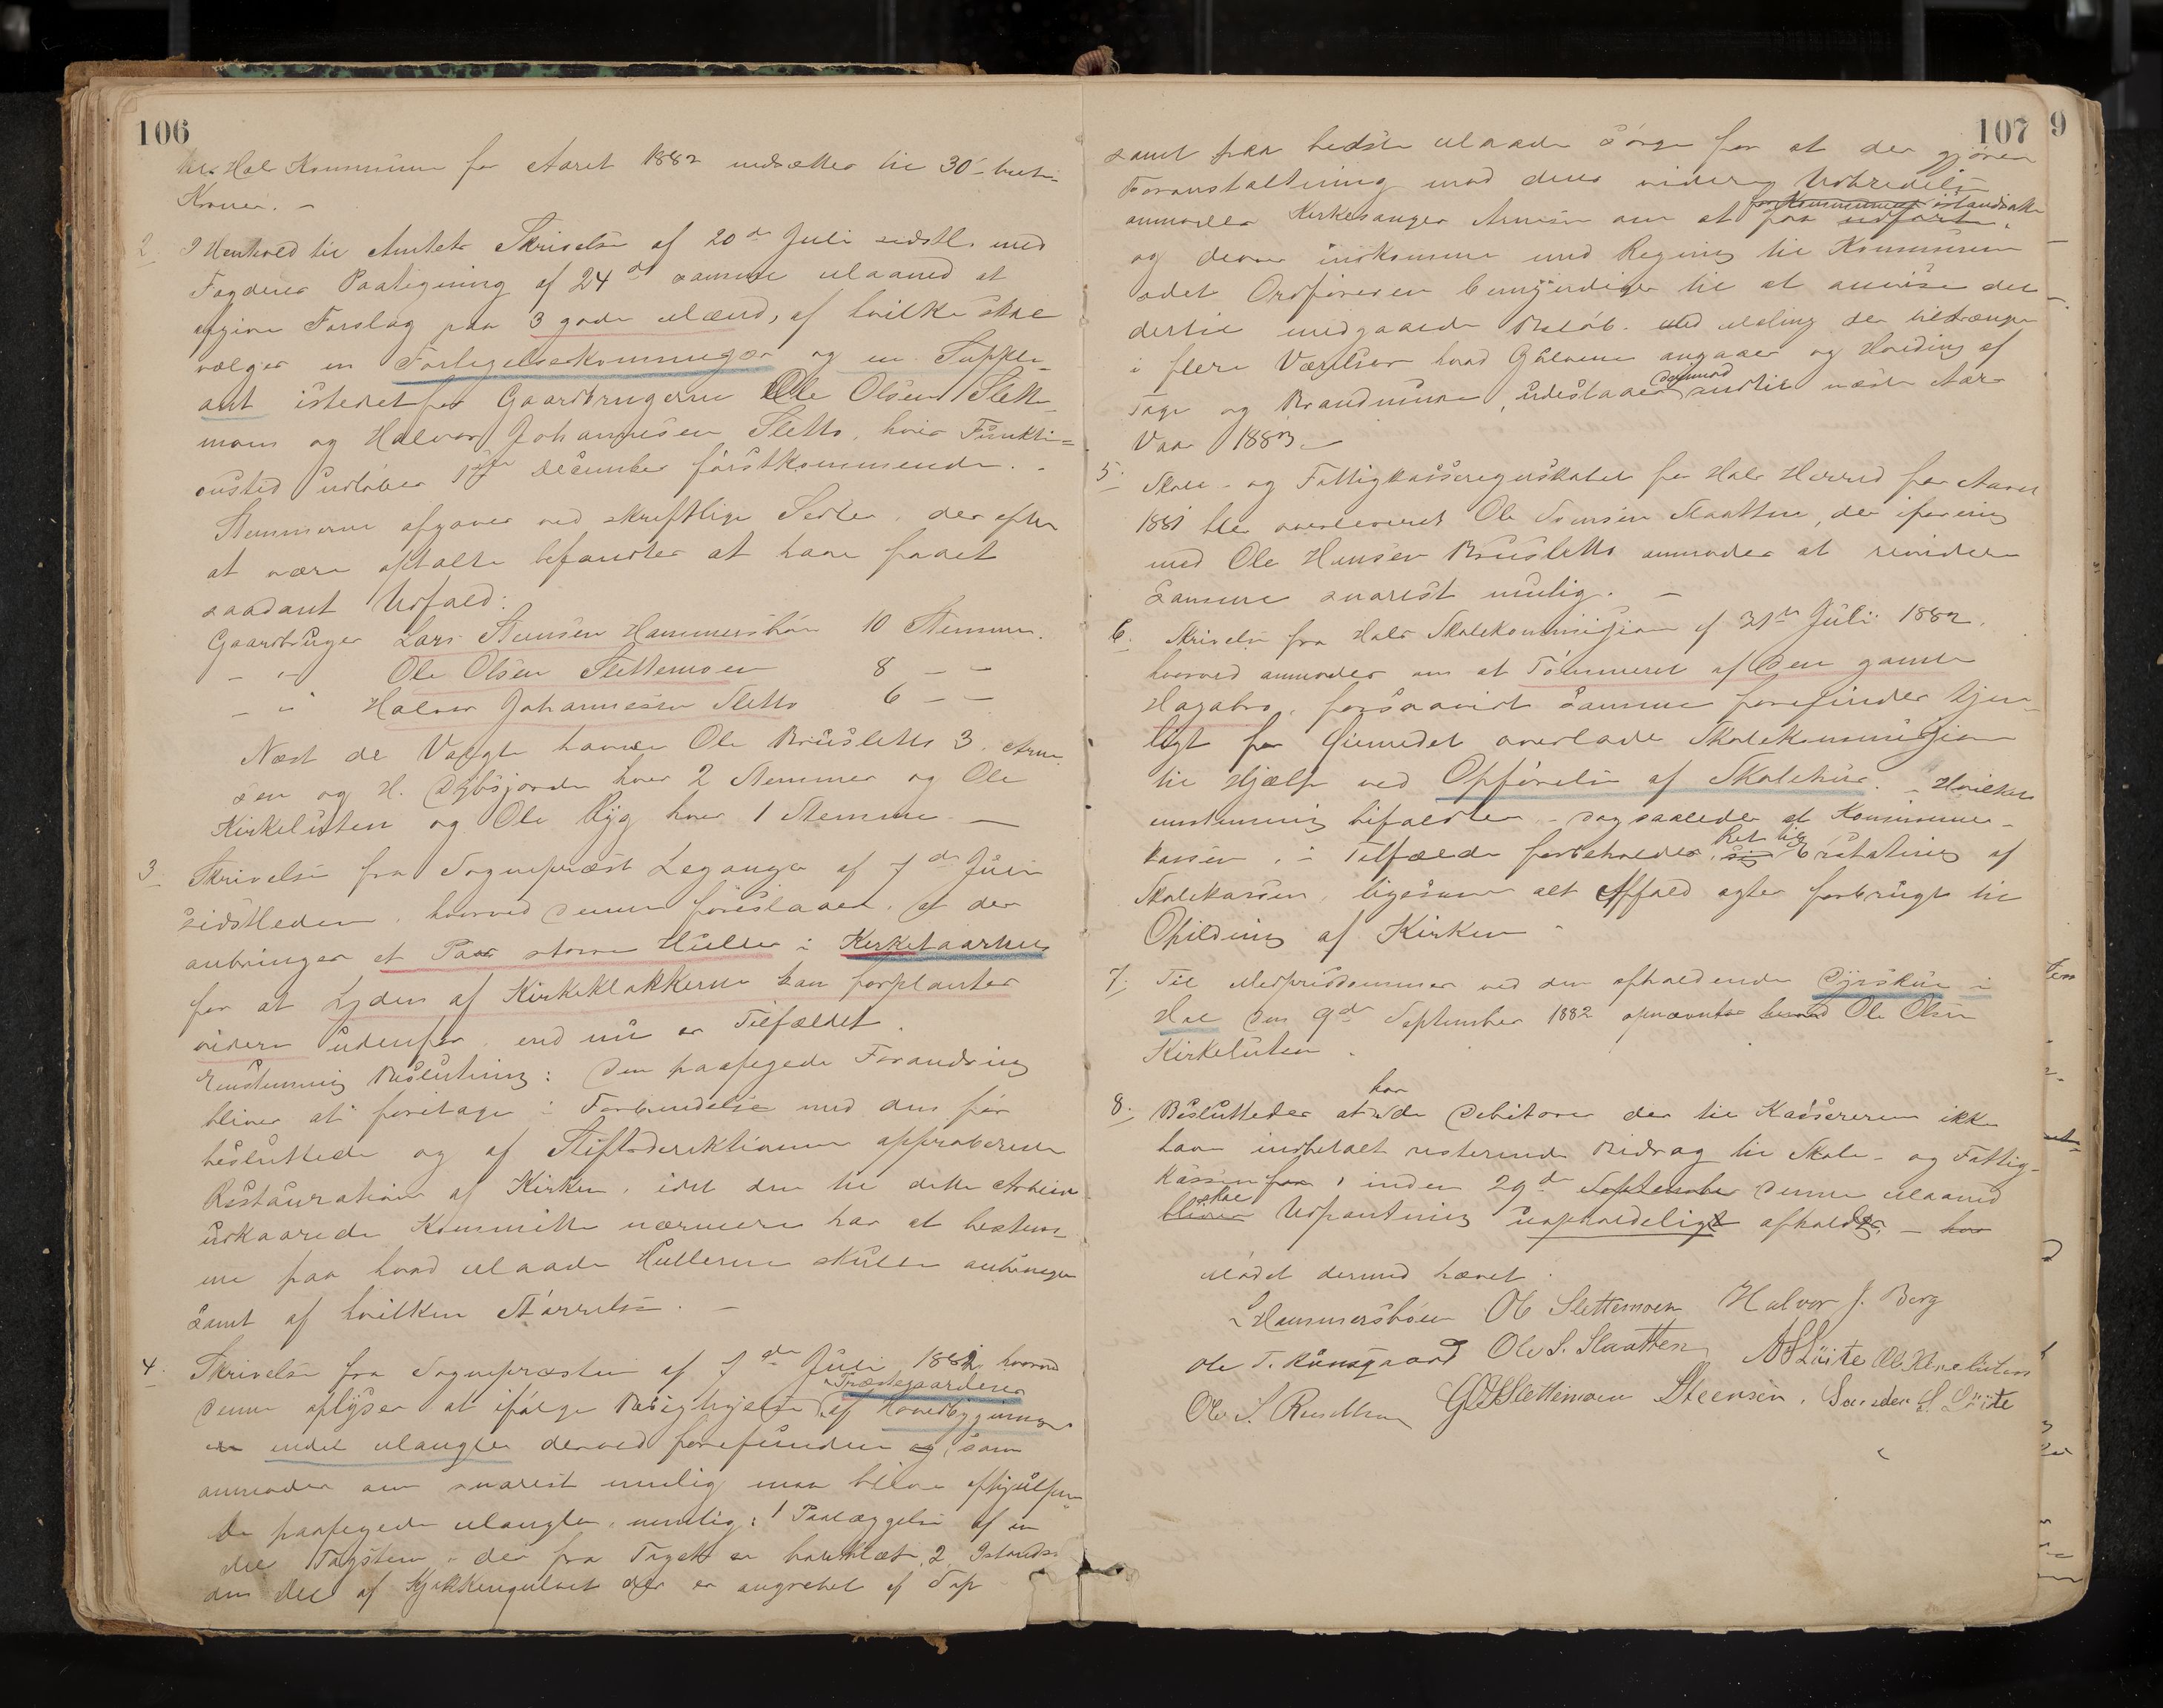 106
Hols Kommune for Aaret 1882 nedsættes til 30 - treti-
Kroner. -
2. I Henhold til Amtets Skrivelse af 20de Juli sidstl. med
Fogdens Paategning af 24de samme Maaned at
afgive Forslag paa 3 gode Mænd, af hvilke skal
vælges en Forligelseskommissær og en Supple-
ant istedetfor Gaardbrugerne Ole Olsen Slette-
moen og Halvor Johannesen Sletto, hvis Funkti-
onstid udløber 1ste December førstkommende. -
Stemmerne afgaves ved skriftlige Sedler, der efter
at være optalte befandtes at have faaet
saadant Udfald:
Gaardbruger Lars Steensen Hammersbøen 10 Stemmer.
- " - Ole Olsen Slettemoen 8 - -
- " Halvor Johannesen Sletto 6 - -
Næst de Valgte havde Ole Brusletto 3, Arne
sen og H. Dybsjorde hver 2 Stemmer og Ole
Kirkeluten og Ole Ryg hver 1 Stemme -
3. Skrivelse fra Sogneprest Leganger af 7de Juli
sidstleden, hvorved denne foreslaaer, at der
anbringes et Par store Huller i Kirketaarnet
for at Lyden af Kirkeklokkerne kan forplantes
videre udenfor, end nu er Tilfældet.
Enstemmig Beslutning: Den paapegede Forandring
bliver at foretage i Forbindelse med den før
besluttede og af Stiftsdirektionen approberede
Restauration af Kirken, idet den til dette Arbeide
udkaarede Kommitte nærmere har at bestem-
me paa hvad Maade Hullerne skulle anbringes
samt af hvilken Størrelse. -
4. Skrivelse fra Sognepresten af 7de Juli 1882 hvorved
Præstegaardens
denne oplyser at ifølge Besigtigelse af Hovedbygningen
er endel Mangler derved forefunden og, som
anmodes om snarest mulig maa blive afhjulpen
De paapegede Mangler, nemlig: 1 Paalæggelse af en
del Tagsten, der fra Taget er bortblæst, 2, Istandsæt
den del af Kjøkkengulvet der er angrebet af Sop
107
9
samt paa bedste Maade sørge for at der gjøres
Foranstaltning mod dens videre Udbredelse
for Kommunen istandsatte
anmodes Kirkesanger Arnesen om at faa udført,
og derom indkomme med Regning til Kommunen
idet Ordføreren bemyndiges til at anvise det
dertil medgaaede Beløb. Med Maling der tiltrænges
i flere Værelser hvad Gulvene angaaer og Hvidning af
dermed
Tage og Brandmure, udestaaes indtil næste Aars
Vaar 1883 -
5. Skole- og Fattigkasseregnskabet for Hols Herred for Aaret
1881 blev overleveret Ole Svensen Slaatten, der iforening
med Ole Hansen Brusletto anmodes at revidere
samme snarest mulig. -
6. Skrivelse fra Hols Skolekommission af 31te Juli 1882,
hvorved anmodes om at Tømmeret af den gamle
Hagabro, forsaavidt samme forefindes tjen-
ligt for Øiemedet overlades Skolekommissionen
til Hjælp ved Opførelse af Skolehus. - Hvilket
enstemmig bifaldtes - dog saaledes at Kommune-
Ret til
kassen, i Tilfælde forbeholdes sig Erstatning af
Skolekassen, ligesom alt Affald agtes forbrugt til
Opildning af Kirken -
7. Til Medprisdommer ved den afholdende Dyrskue i
Hol den 9de September 1882 opnævntes herved Ole Olsen
Kirkeluten.
8. Besluttedes at hos de Debitorer der til Kassereren ikke
have indbetalt resterende Bidrag til Skole- og Fattig-
kassen for, inden 29de September denne Maaned
skal
bliver Udpantning uopholdeligt afholdes, - hos
Mødet dermed hævet.
L Hammersbøen Ole Slettemoen Halvor J. Berg
Ole T. Kunsgaard Ole S. Slaatten A Luite Ole Kirkeluten
Ole S. Slettemoen Steensen. L. Luite